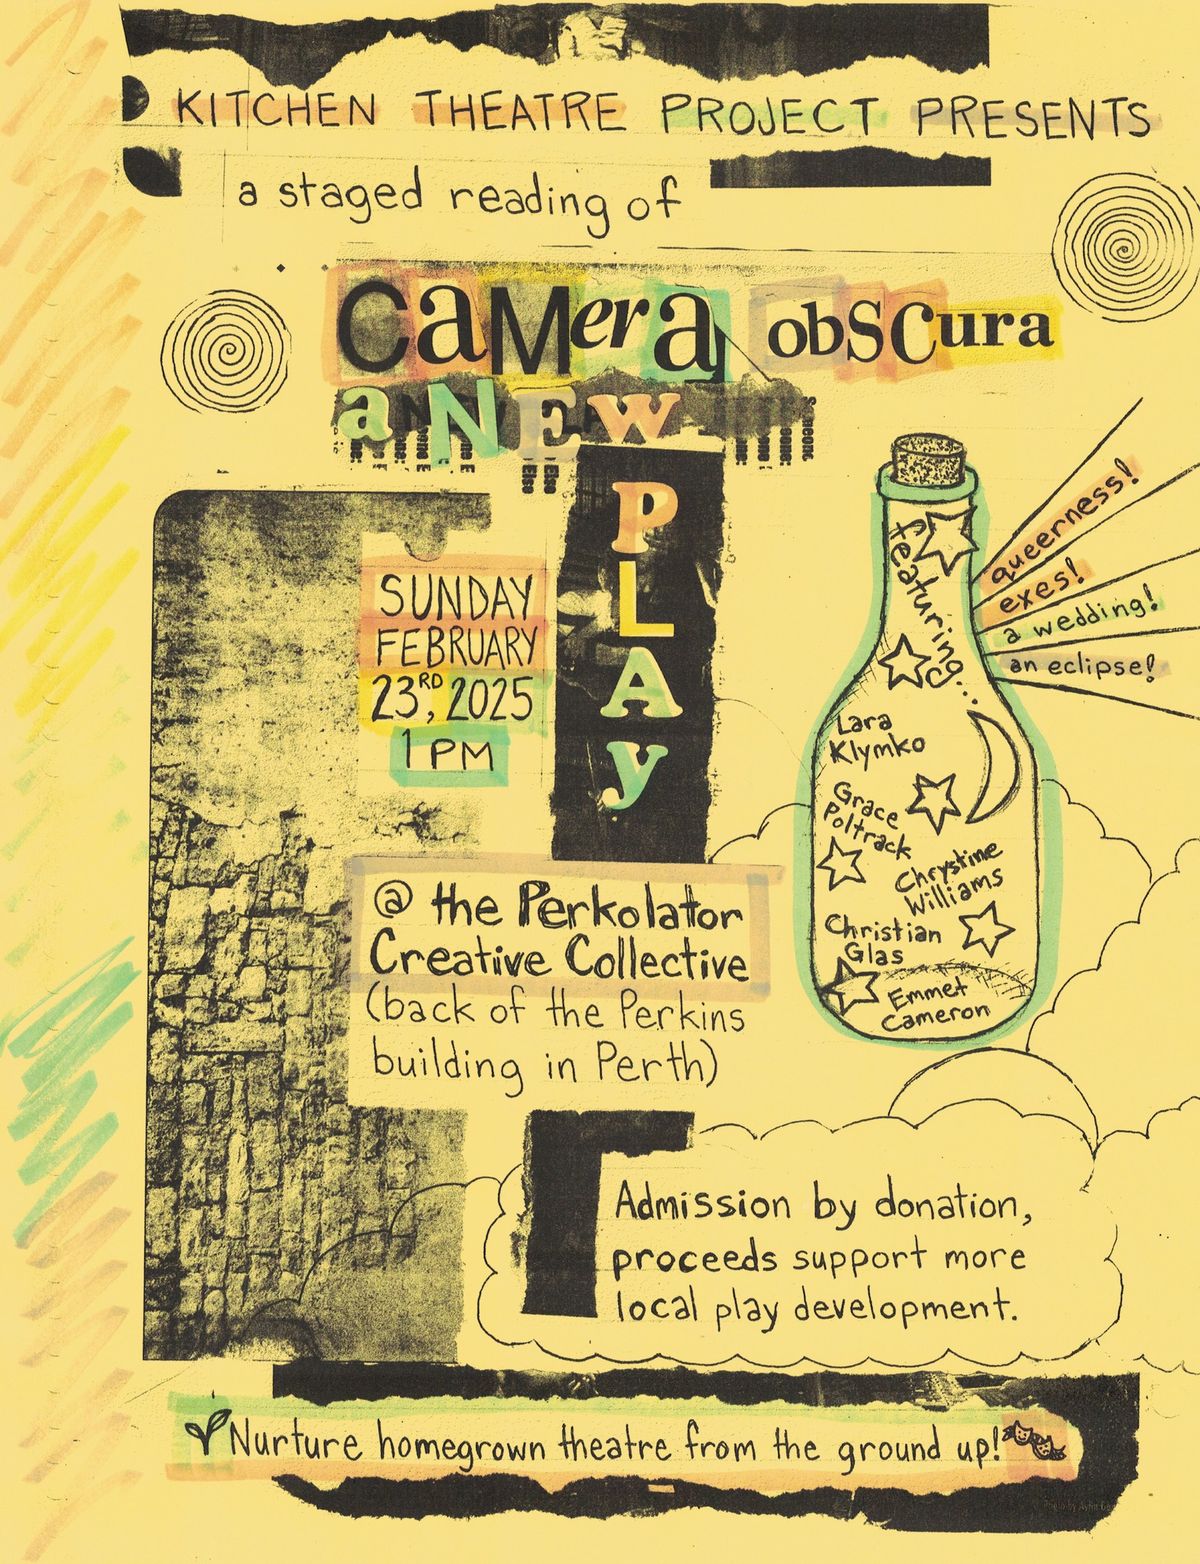 KITCHEN THEATRE PROJECT PRESENTS
a staged reading of
CaMera obSCura
a NEw
PLAy
SUNDAY
FEBRUARY
23RD, 2025
1 PM
@ the Perkolator
Creative Collective
(back of the Perkins
building in Perth)
featuring...
queerness!
exes!
a wedding!
an eclipse!
Lara
Klymko
Grace
Poltrack
Chrystine
Williams
Christian
Glas
Emmet
Cameron
Admission by donation,
proceeds support more
local play development.
Nurture homegrown theatre from the ground up!